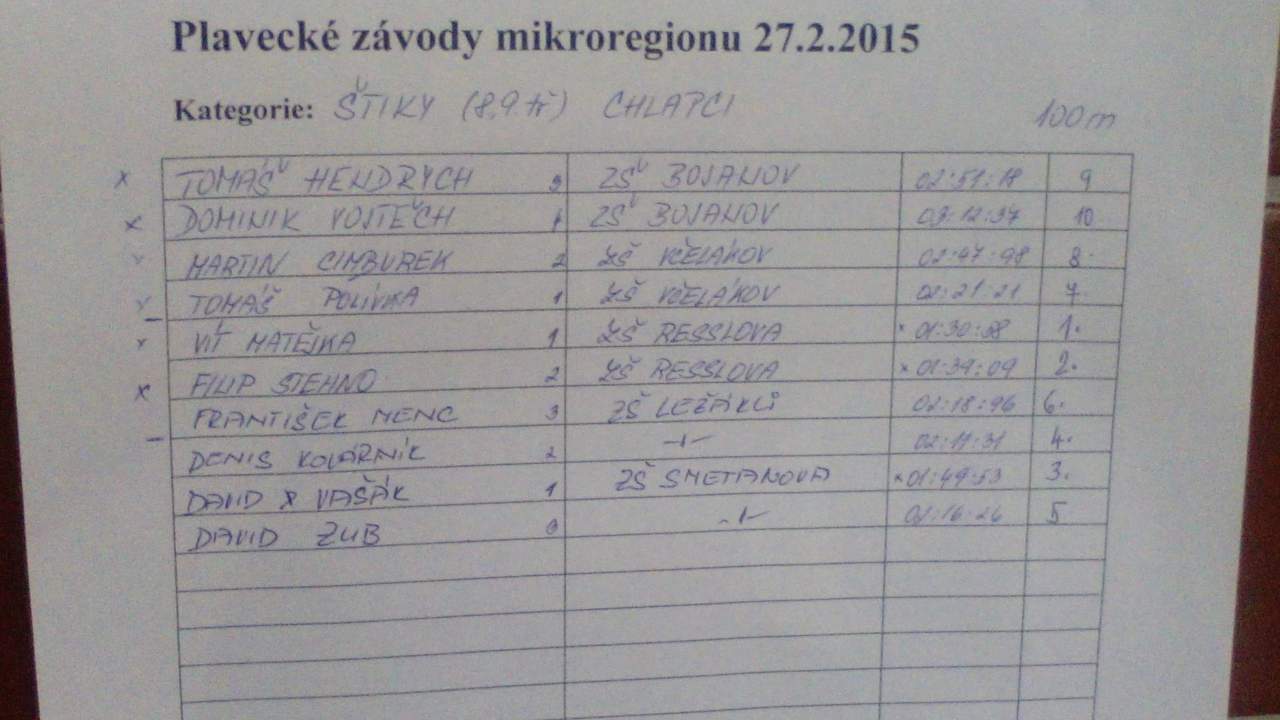 Plavecké závody mikroregionu 27.2.2015
Kategorie: ŠTIKY (8,9.tř) CHLAPCI 100m
x TOMÁŠ HENDRYCH 3 ZŠ BOJANOV 02:51:18 9
x DOMINIK VOJTĚCH 1 ZŠ BOJANOV 03:12:37 10
x MARTIN CIMBUREK 2 ZŠ VČELÁKOV 02:47:98 8.
x TOMÁŠ POLÍVKA 1 ZŠ VČELÁKOV 02:21:21 7.
x VÍT MATĚJKA 1 ZŠ RESSLOVA x 01:30:58 1.
x FILIP STEHNO 2 ZŠ RESSLOVA x 01:39:09 2.
FRANTIŠEK MENC 3 ZŠ LEŽÁKŮ 02:18:96 6.
DENIS KOVÁRNÍK 2 -//- 02:11:31 4.
DAVID VAŠÁK 1 ZŠ SMETANOVA x 01:49:53 3.
DAVID ZUB -//- 02:16:26 5.